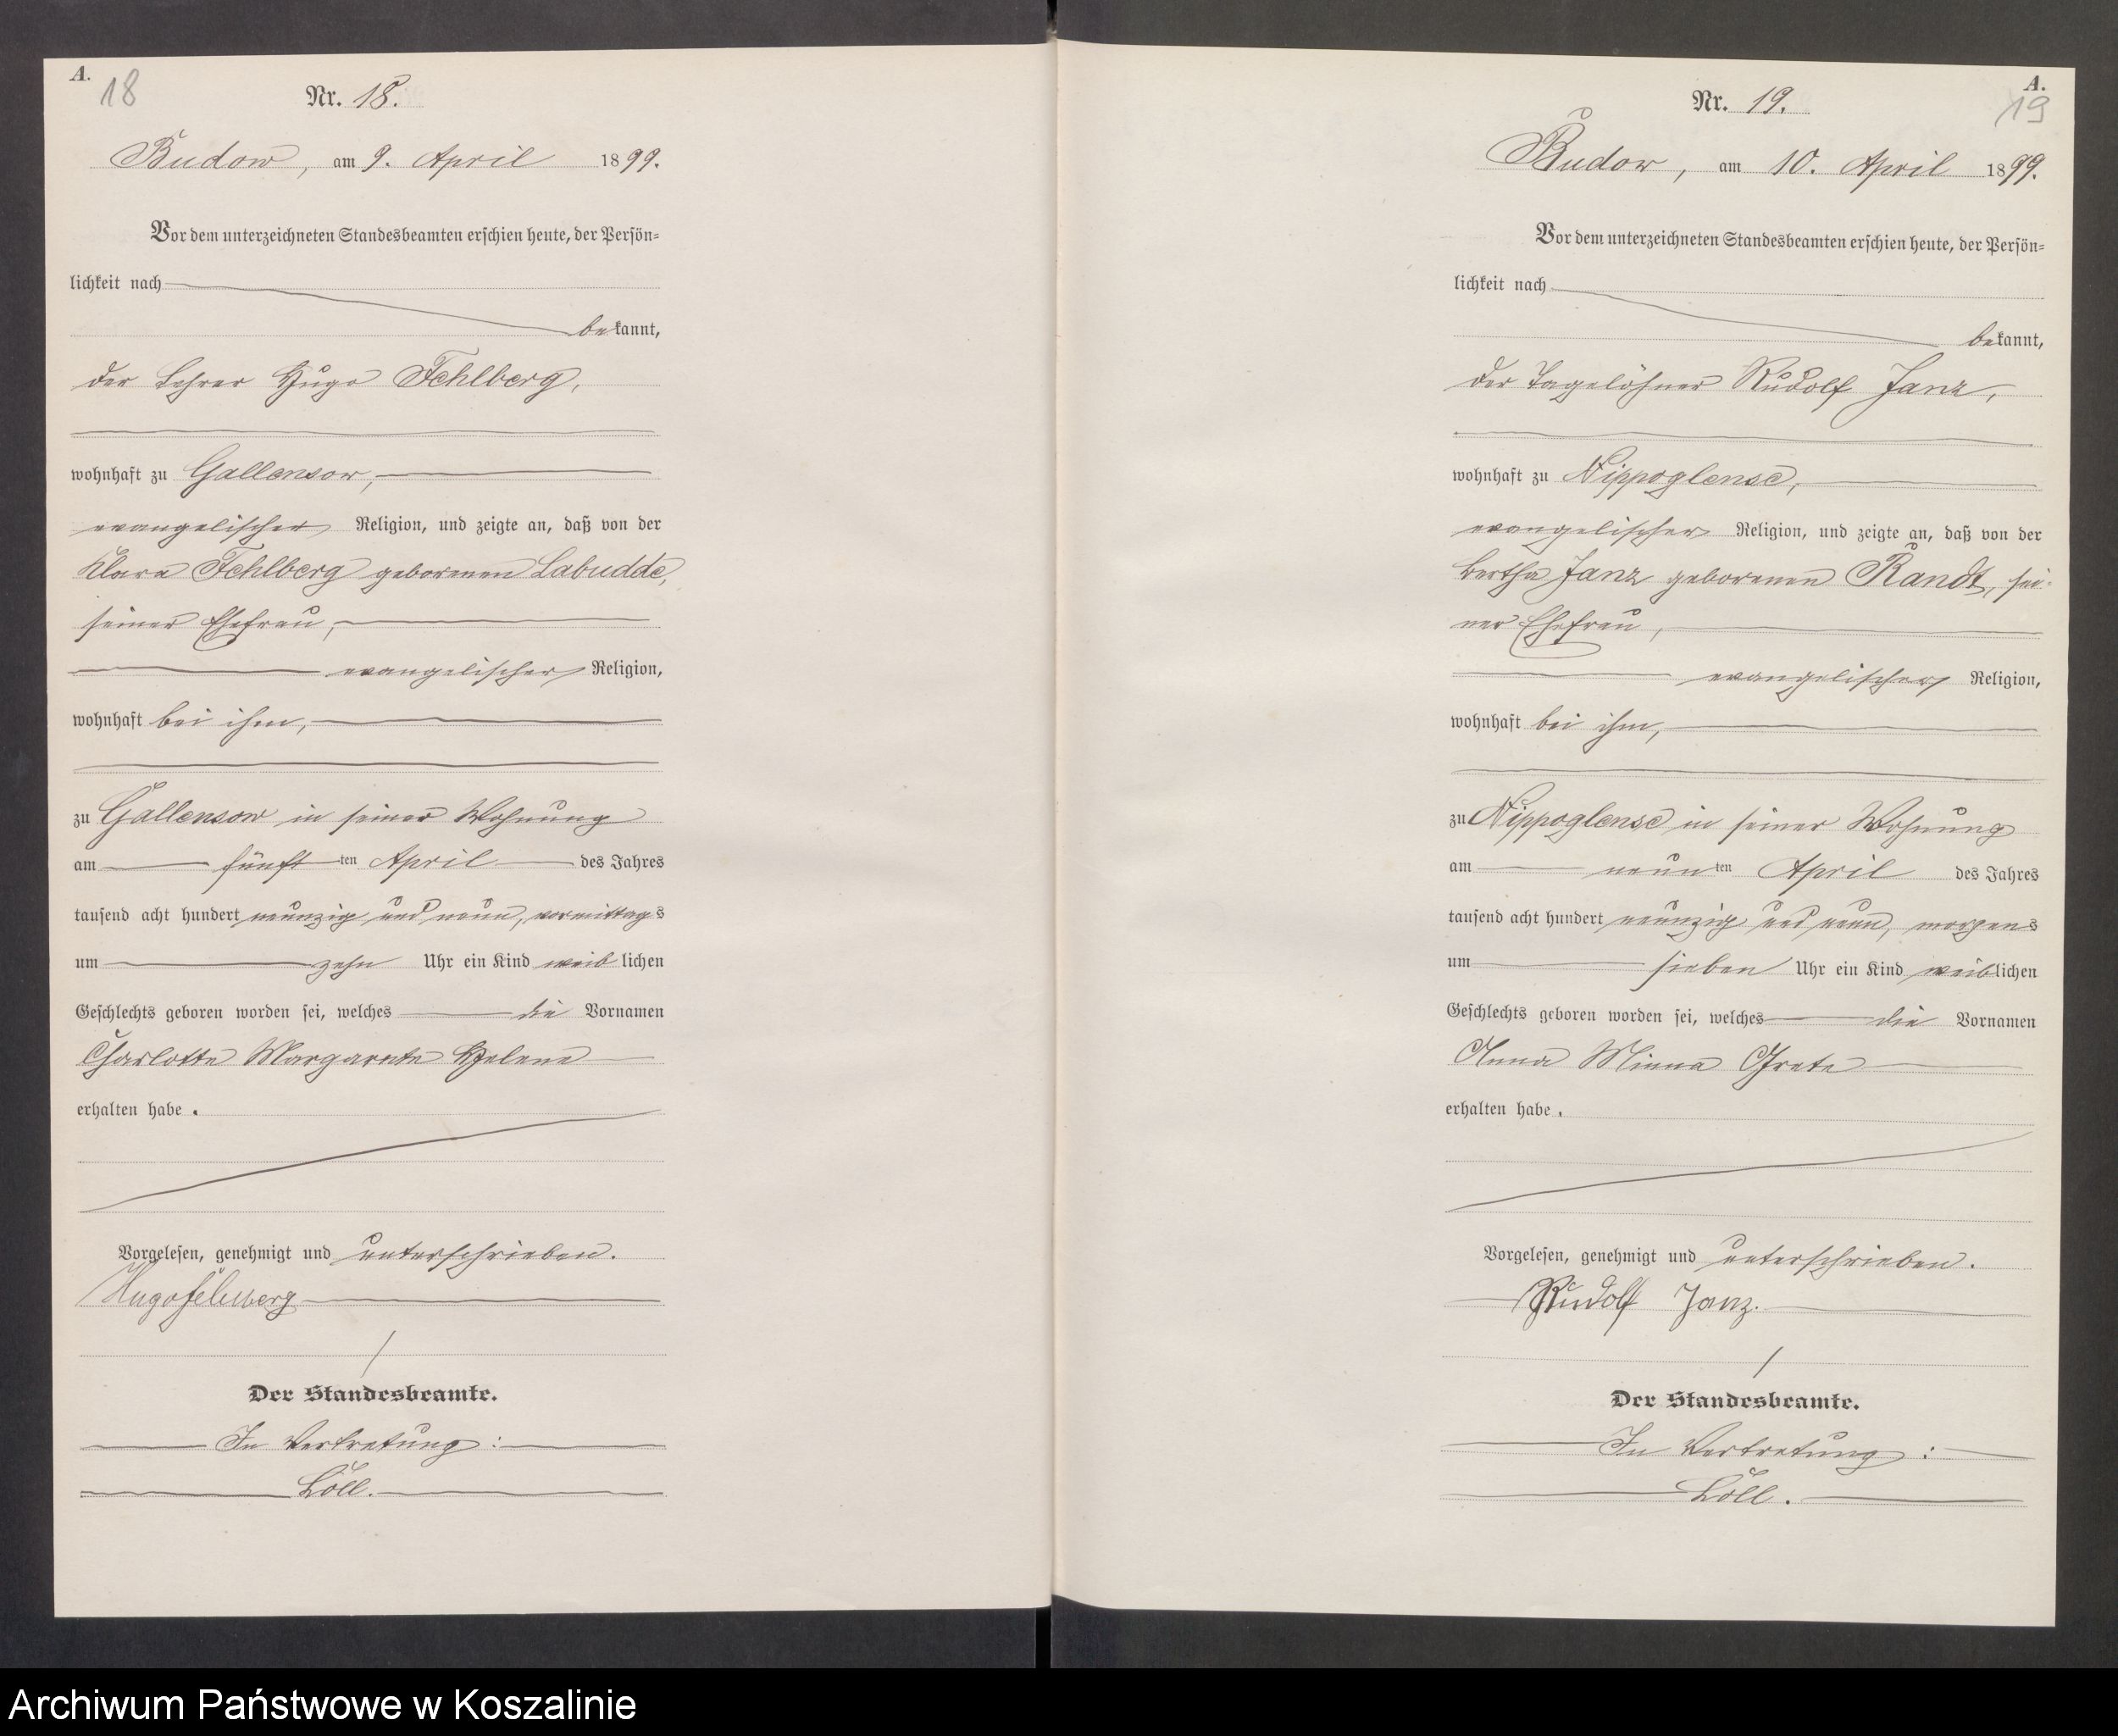 A.
18
Nr. 18.
Budow, am 9. April 1899.
Vor dem unterzeichneten Standesbeamten erschien heute, der Persön-
lichkeit nach
bekannt,
der Lehrer Hugo Fehlberg,
wohnhaft zu Gallensow,
evangelischer Religion, und zeigte an, daß von der
Klara Fehlberg geborenen Labudde,
seiner Ehefrau,
evangelischer Religion,
wohnhaft bei ihm,
zu Gallensow in seiner Wohnung
am fünften April des Jahres
tausend acht hundert neunzig und neun, vormittags
um zehn Uhr ein Kind weiblichen
Geschlechts geboren worden sei, welches die Vornamen
Charlotte Margarete Helene
erhalten habe.
Vorgelesen, genehmigt und unterschrieben.
Hugo Fehlberg
Der Standesbeamte.
In Vertretung:
Löll.
A.
19
Nr. 19.
Budow, am 10. April 1899.
Vor dem unterzeichneten Standesbeamten erschien heute, der Persön-
lichkeit nach
bekannt,
der Tagelöhner Rudolf Janz,
wohnhaft zu Nippoglense,
evangelischer Religion, und zeigte an, daß von der
Bertha Janz geborenen Randt, sei-
ner Ehefrau,
evangelischer Religion,
wohnhaft bei ihm,
zu Nippoglense in seiner Wohnung
am neunten April des Jahres
tausend acht hundert neunzig und neun, morgens
um sieben Uhr ein Kind weiblichen
Geschlechts geboren worden sei, welches die Vornamen
Anna Minna Grete
erhalten habe.
Vorgelesen, genehmigt und unterschrieben.
Rudolf Janz.
Der Standesbeamte.
In Vertretung:
Löll.
Archiwum Państwowe w Koszalinie